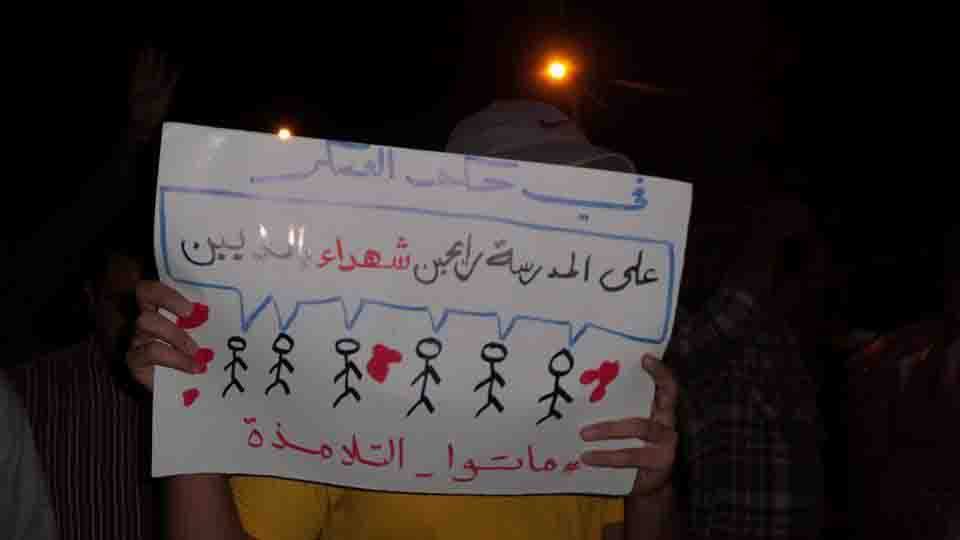 في حكم العسكر
على المدرسة رايحين شهداء بالملايين
#ماتوا_التلامذة